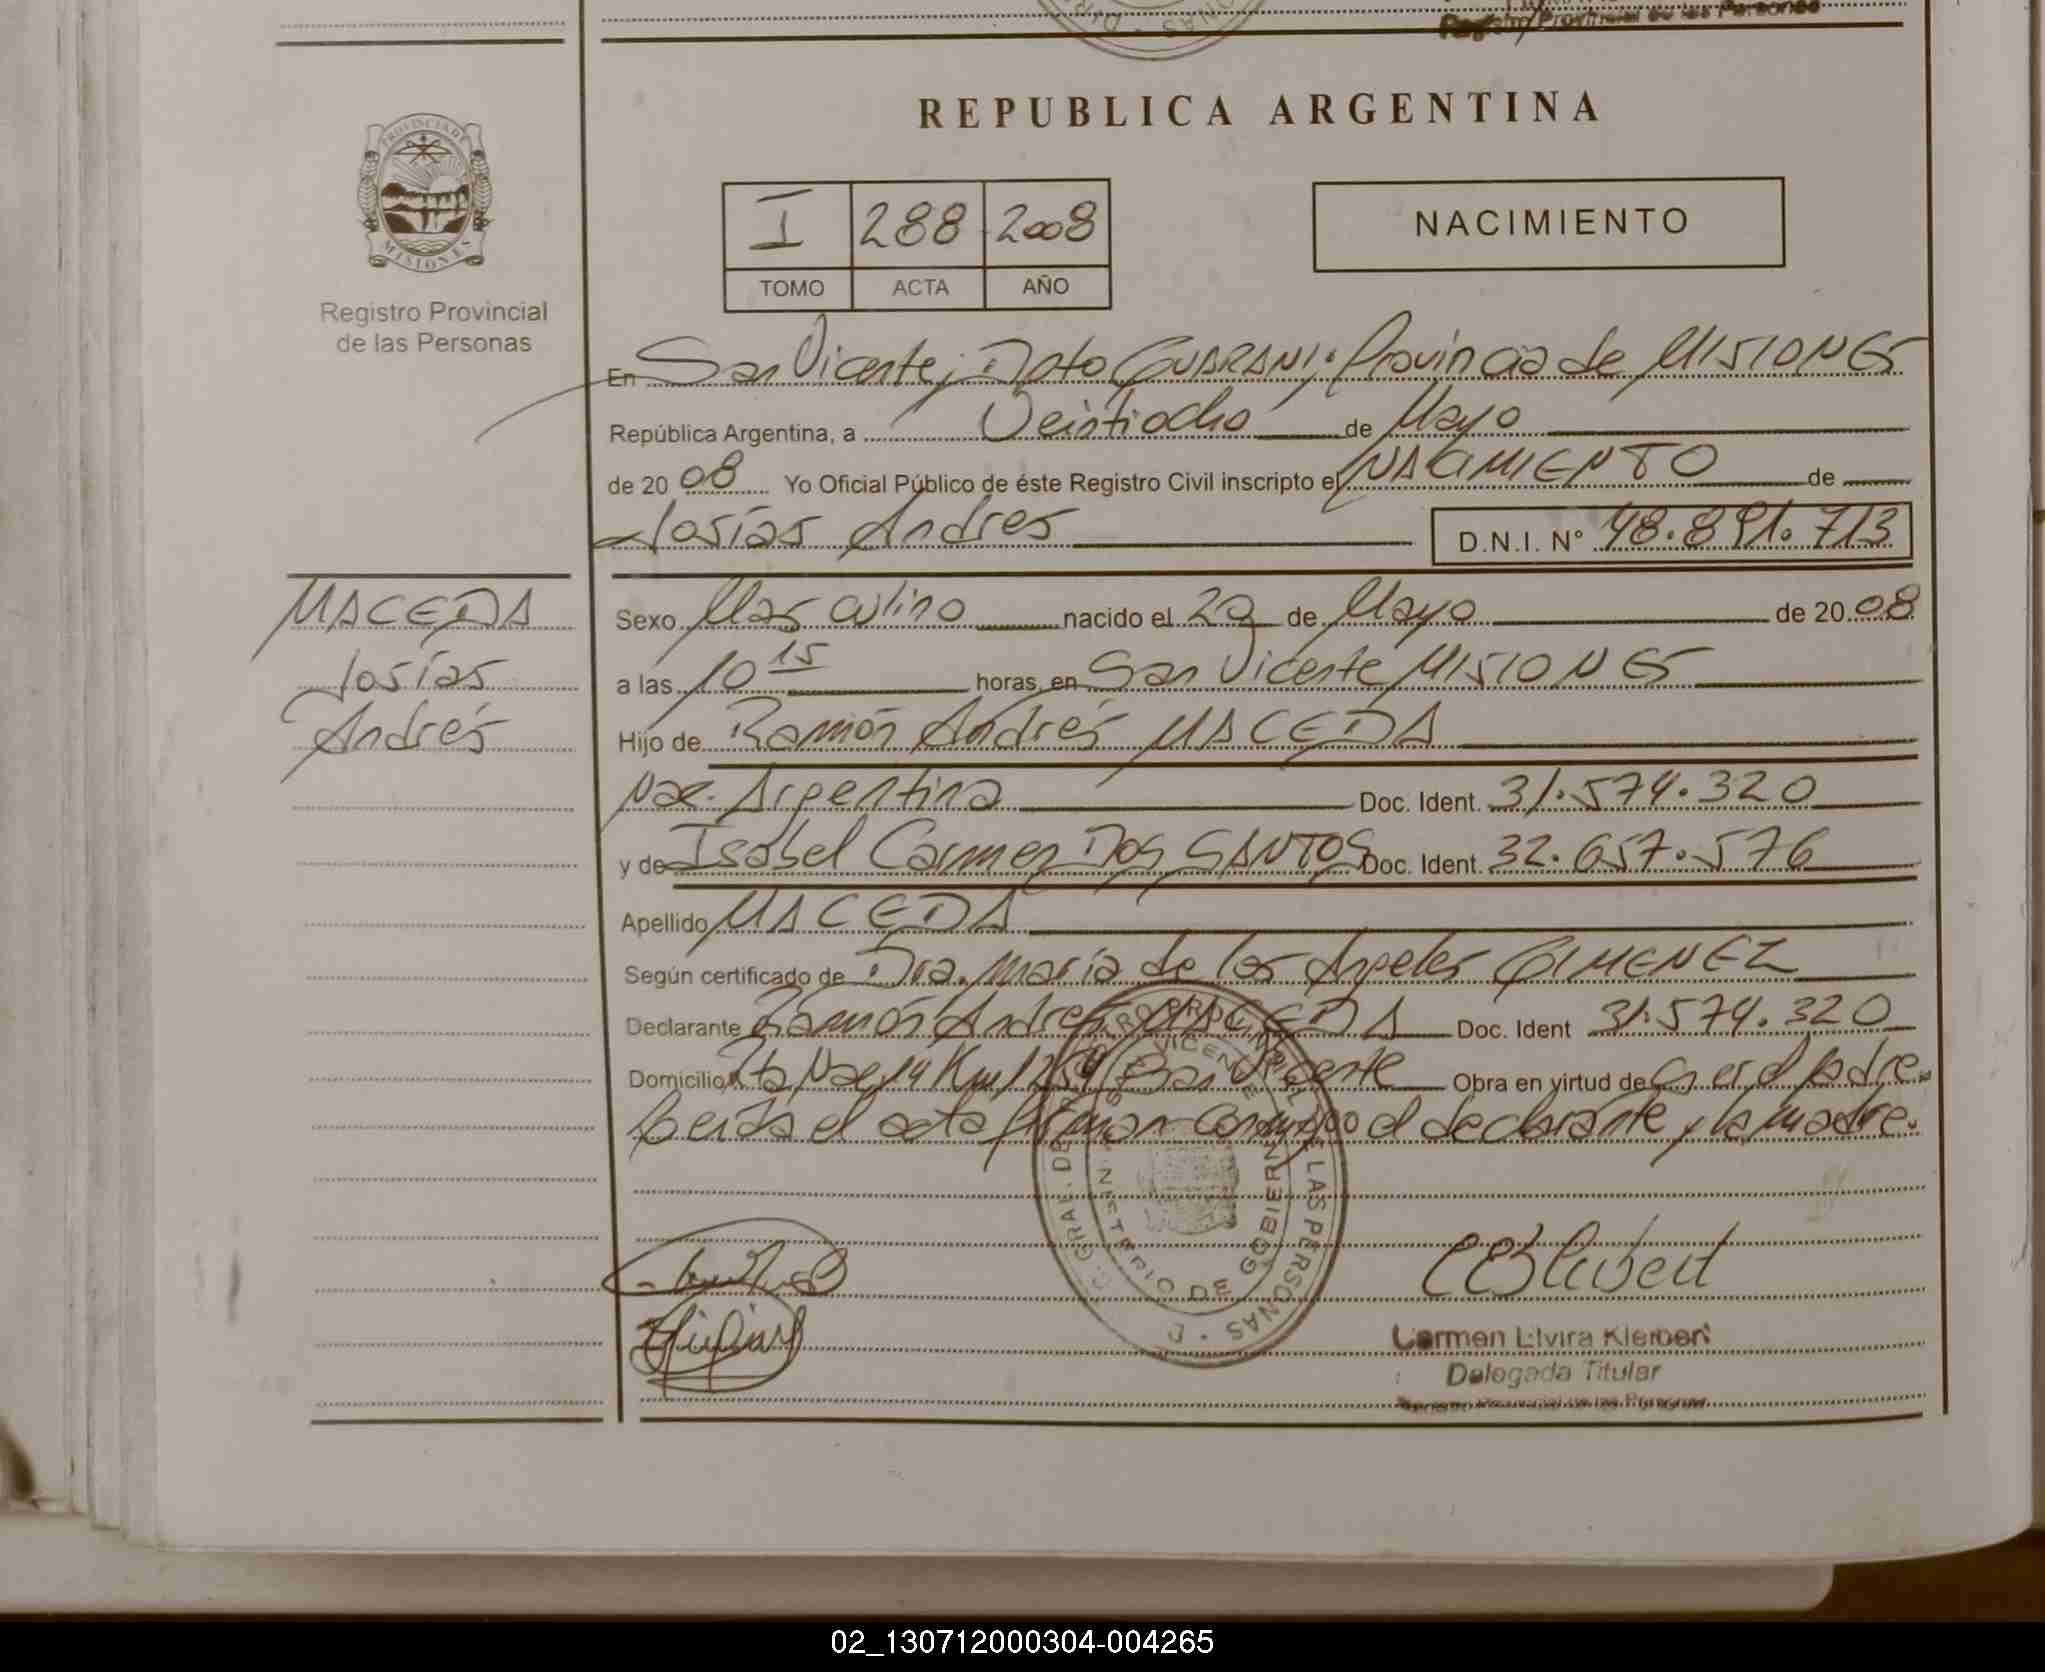 REPUBLICA ARGENTINA
PROVINCIA DE
MISIONES
Registro Provincial
de las Personas
I 288 2008
TOMO ACTA AÑO
NACIMIENTO
En San Vicente, Dpto GUARANI, Provincia de MISIONES
República Argentina, a Veintiocho de Mayo
de 20 08 Yo Oficial Público de éste Registro Civil inscripto el NACIMIENTO de
Josías Andres D.N.I. N° 48.891.713
MACEDA
Josías
Andrés
Sexo Masculino nacido el de Mayo de 20 08
a las 10 15 horas, en San Vicente MISIONES
Hijo de Ramón Andrés MACEDA
Nac. Argentina Doc. Ident. 31.574.320
y de Isabel Carmen DOS SANTOS Doc. Ident. 32.657.576
Apellido MACEDA
Según certificado de Dra. María de los Angeles GIMENEZ
Declarante Ramón Andres MACEDA Doc. Ident 31.574.320
Domicilio Rta Nac 14 Km San Vicente Obra en virtud de ser el padre.
Leída el acta firman conmigo el declarante y la madre.
Carmen Elvira Kleibert
Delegada Titular
Registro Provincial de las Personas
02_130712000304-004265